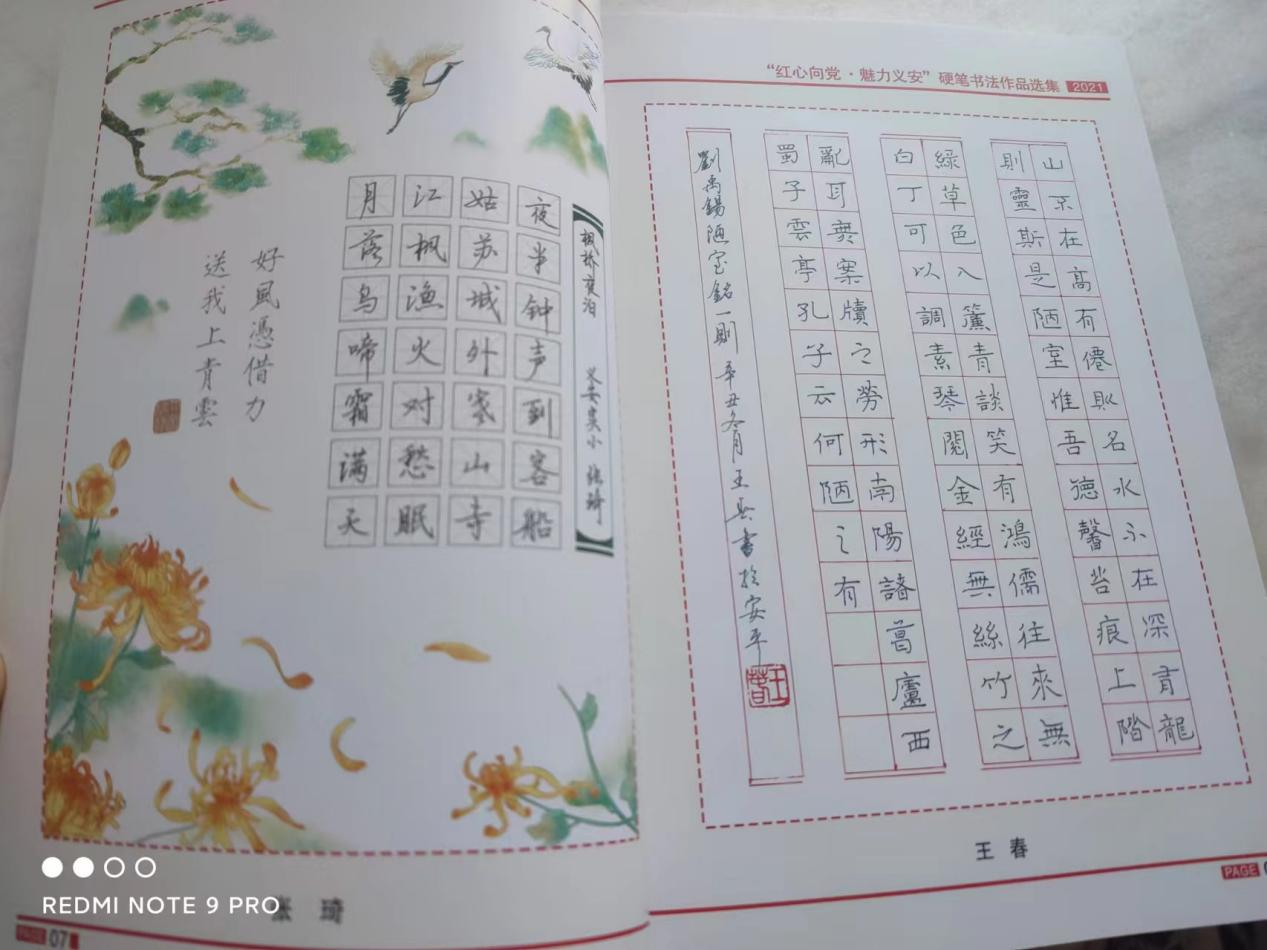 月落乌啼霜满天
江枫渔火对愁眠
姑苏城外寒山寺
夜半钟声到客船
枫桥夜泊 义安实小 张琦
好風憑借力
送我上青雲
张 琦
PAGE 07
REDMI NOTE 9 PRO
“红心向党·魅力义安”硬笔书法作品选集 2021
山不在高有僊則名水不在深有龍
則靈斯是陋室惟吾德馨苔痕上階
綠草色入簾青談笑有鴻儒往來無
白丁可以調素琴閱金經無絲竹之
亂耳無案牘之勞形南陽諸葛廬西
蜀子雲亭孔子云何陋之有
劉禹錫陋室銘一則 辛丑冬月王春書於安平
王春
王 春
PAGE